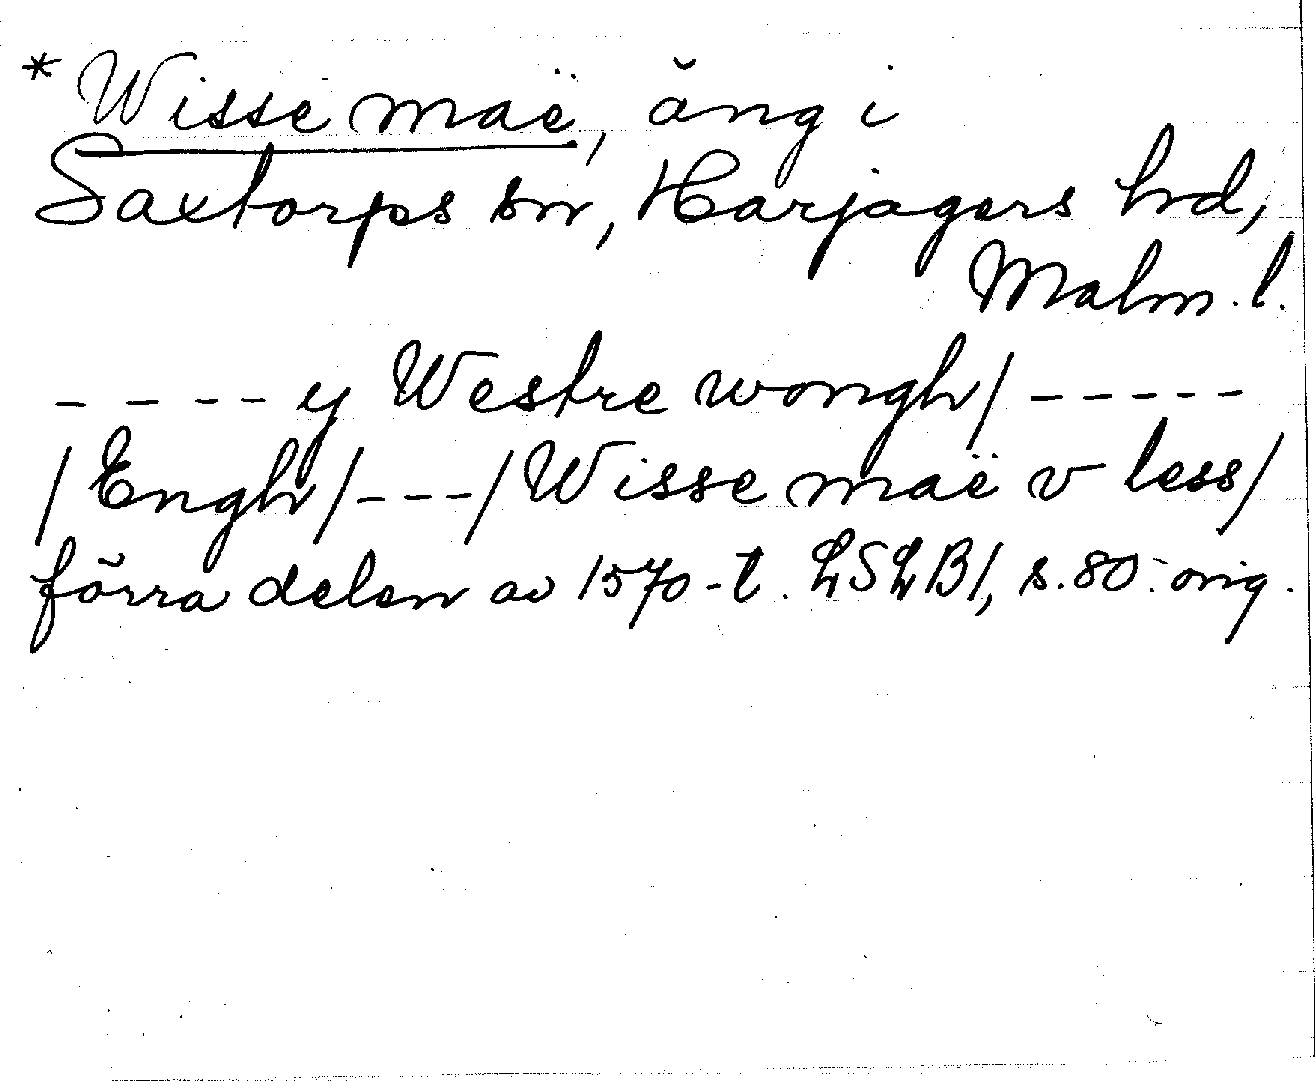 * Wisse maë, äng i
Saxtorps sn, Harjagers hd,
Malm. l.
- - - - y Westre wongh/ - - - - -
/Engh/ - - - /Wisse maë v less/
förra delen av 1570-t. LSLB1, s. 80. orig.